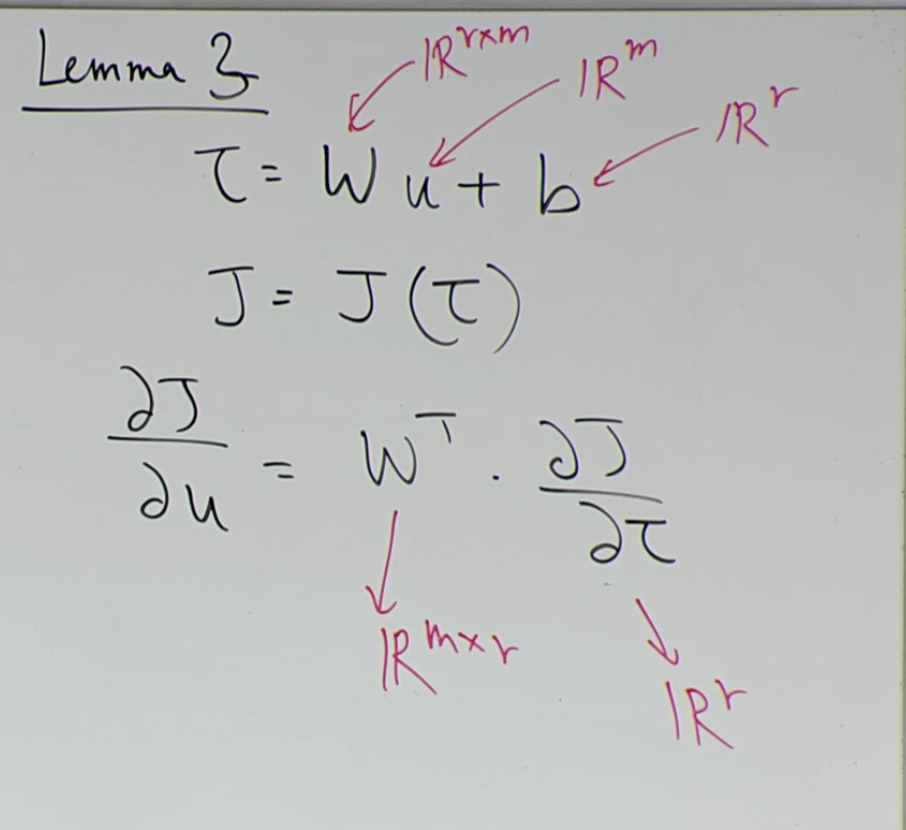 Lemma 3
ℝ^{r×m} ℝ^m ℝ^r
τ = W u + b
J = J(τ)
∂J/∂u = W^T · ∂J/∂τ
ℝ^{m×r}
ℝ^r